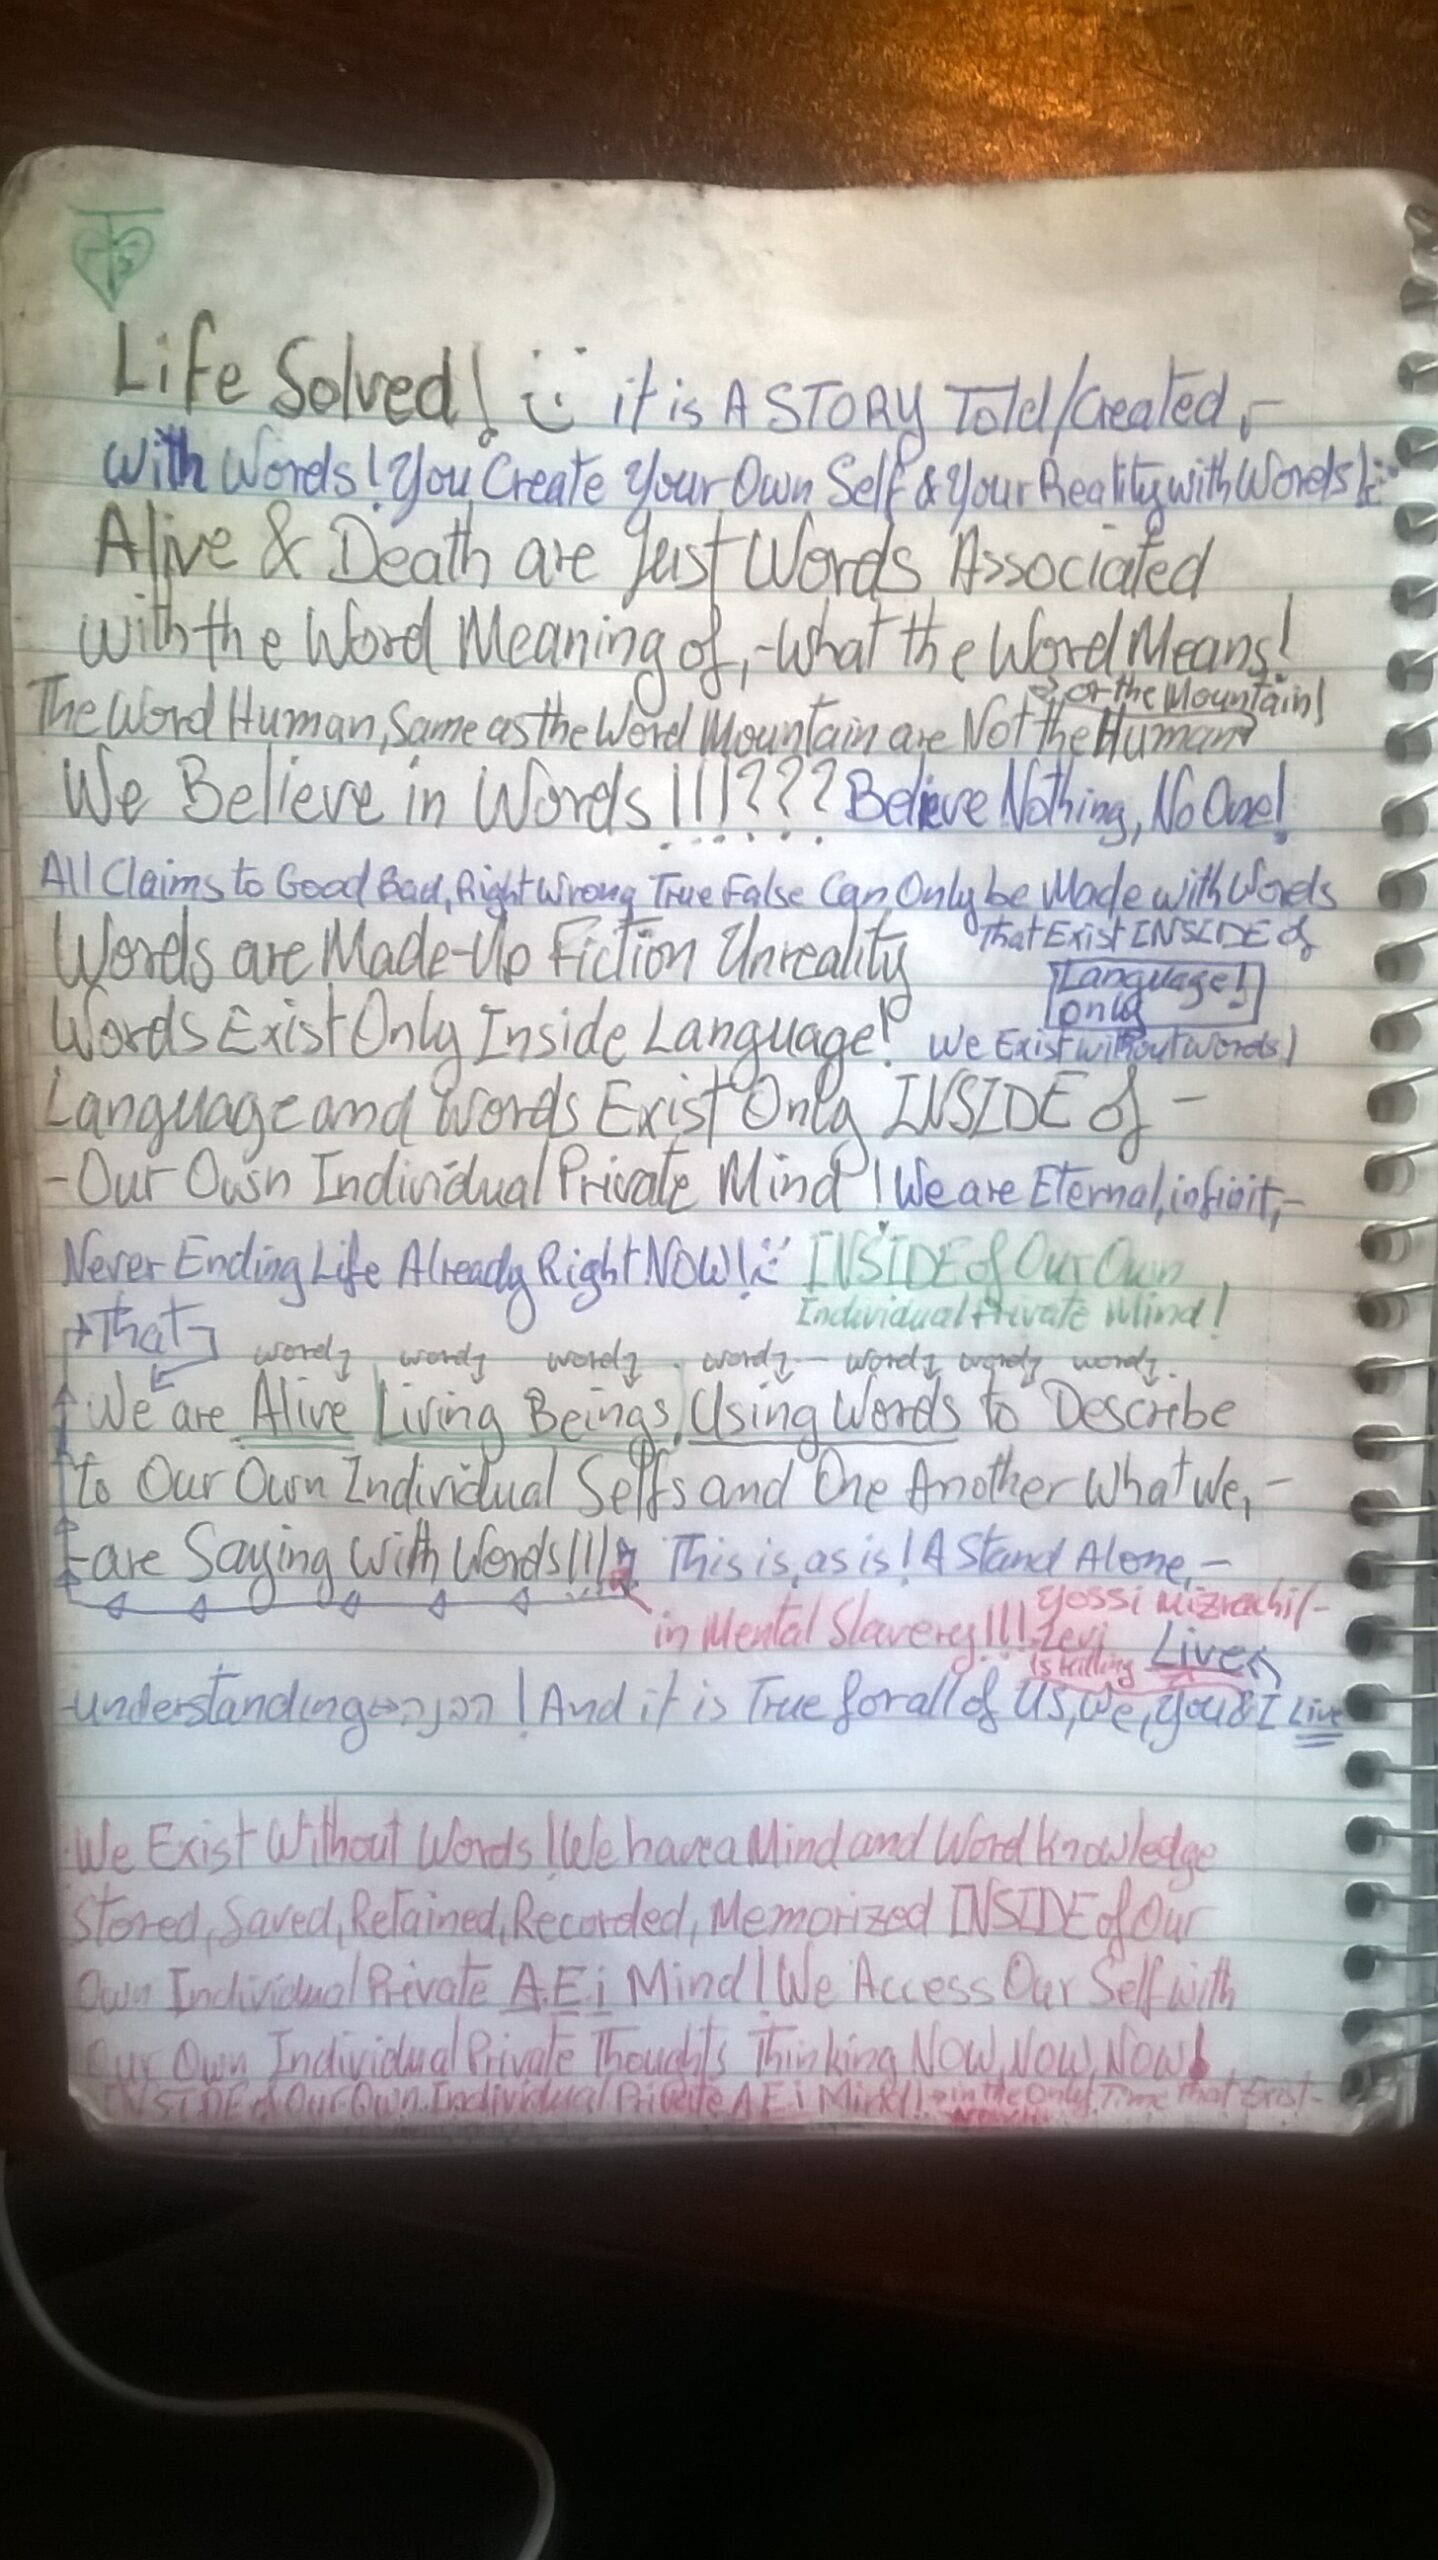 Life Solved! it is A STORY Told/Created,-
with Words! You Create Your Own Self & Your Reality with Words!
Alive & Death are Just Words Associated
with the Word Meaning of,-What the Word Means!
or the Mountain!
The Word Human, Same as the Word Mountain are Not the Human
We Believe in Words!!!??? Believe Nothing, No One!
All Claims to Good Bad, Right Wrong True False Can Only be Made with Words
That Exist INSIDE of
Words are Made-Up Fiction Unreality
Language!
only
Words Exist Only Inside Language! We Exist without words!
Language and Words Exist Only INSIDE of -
-Our Own Individual Private Mind! We are Eternal, infinit,-
Never Ending Life Already Right NOW! INSIDE of Our Own
Individual Private Mind!
That
word word word word word word word
We are Alive Living Beings Using Words to Describe
to Our Own Individual Selfs and One Another What We,-
-are Saying with Words!!! This is, as is! A Stand Alone,-
Yossi Mizrachi/-
in Mental Slavery!!! Levi Live
is telling
-understanding=הבנה! And it is True for all of Us, We, You & I Live
We Exist Without Words! We have a Mind and Word Knowledge
Stored, Saved, Retained, Recorded, Memorized INSIDE of Our
Own Individual Private A.E.i Mind! We Access Our Self with
Our Own Individual Private Thoughts Thinking NOW, NOW, NOW!
INSIDE of Our Own Individual Private A.E.i Mind! in the Only Time that Exist-